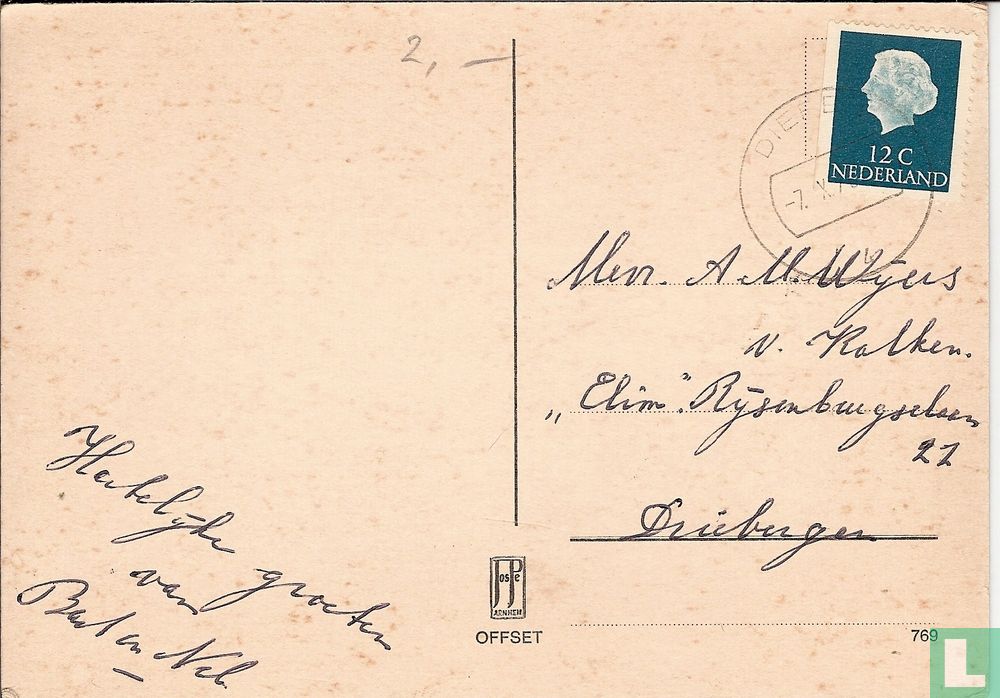 2,-
12 C
NEDERLAND
Mevr. A M. Wijers
v. Kalken.
"Elim". Rijsenburgselaan
22
Driebergen
Hartelijke groeten
van
Bart en
JosPe
ARNHEM
OFFSET
769
L